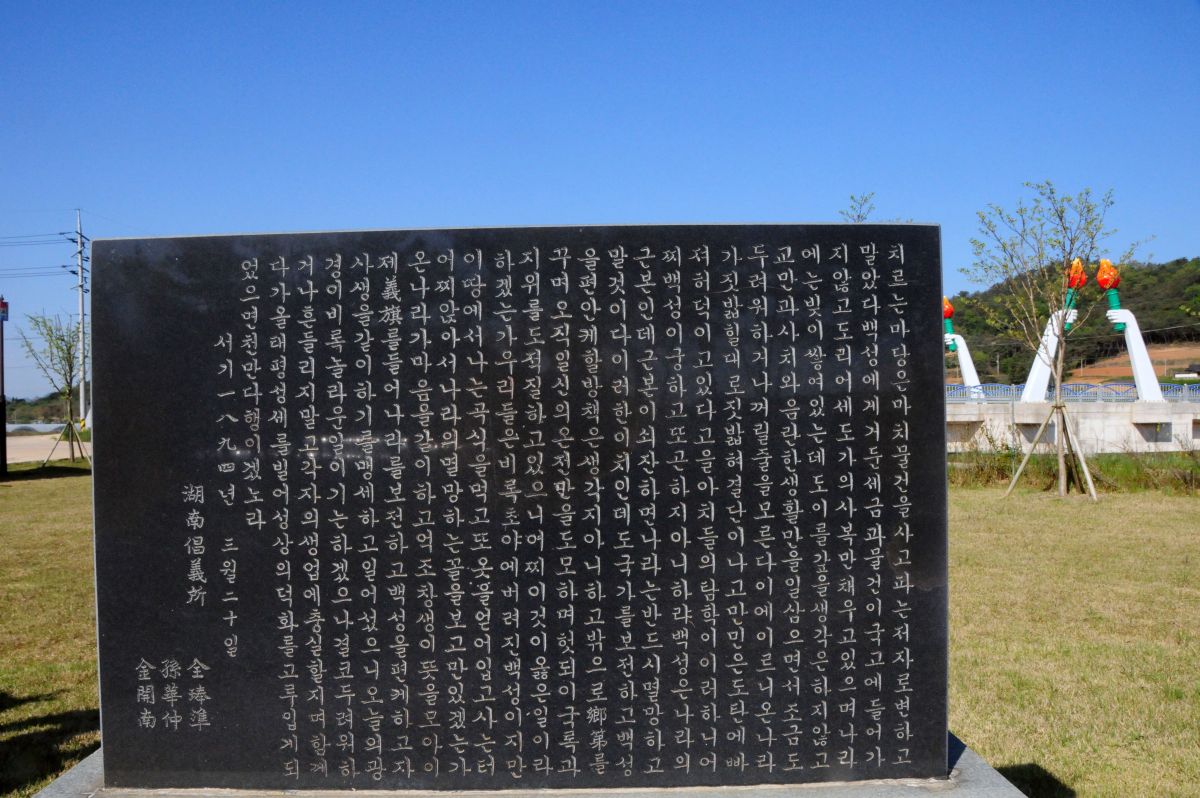 치르는마당은마치물건을사고파는저자로변하고
말았다백성에게거둔세금과물건이국고에들어가
지않고도리어세도가의사복만채우고있으며나라
에는빚이쌓여있는데도이를갚을생각은하지않고
교만과사치와음란한생활만을일삼으면서조금도
두려워하거나꺼릴줄을모른다이에이르니온나라
가짓밟힐대로짓밟혀결단이나고만민은도탄에빠
져허덕이고있다고을아치들의탐학이이러하니어
찌백성이궁하고또곤하지아니하랴백성은나라의
근본인데근본이쇠잔하면나라는반드시멸망하고
말것이다이러한이치인데도국가를보전하고백성
을편안케할방책은생각지아니하고밖으로鄕第를
꾸며오직일신의온전만을도모하며헛되이국록과
지위를도적질하고있으니여찌이것이옳은일이라
하겠는가우리들은비록초야에버려진백성이지만
이땅에서나는곡식을먹고또옷을얻어입고사는터
어찌앉아서나라의멸망하는꼴을보고만있겠는가
온나라가마음을같이하고억조창생이뜻을모아이
제義旗를들어나라를보전하고백성을편케하고자
사생을같이하기를맹세하고일어섰으니오늘의광
경이비록놀라운일이기는하겠으나결코두려워하
거나흔들리지말고각자의생업에충실할지며함께
다가올태평성세를빌어성상의덕화를고루입게되
었으면천만다행이겠노라
서기一八九四년 三월二十일
湖南倡義所 全琫準
孫華仲
金開南